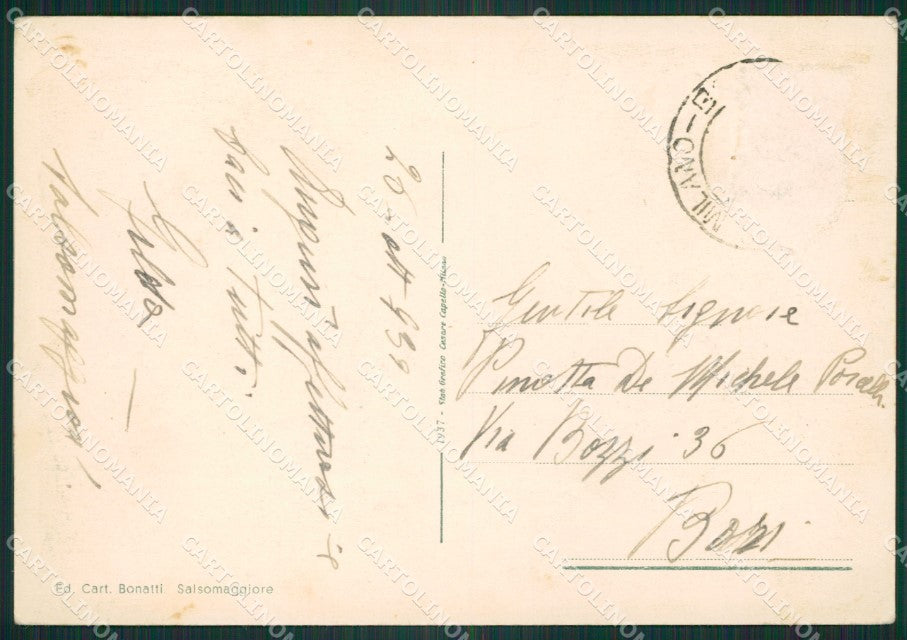 20 ott 939
Auguri affettuosi e
baci a tutti.
Salsomaggiore!
MILANO-BE
Gentile Signora
Pinetta De Michele
Via Bozzi 36
Bari
1937 - Stab. Grafico Cesare Capello-Milano
Ed. Cart. Bonatti Salsomaggiore
CARTOLINOMANIA